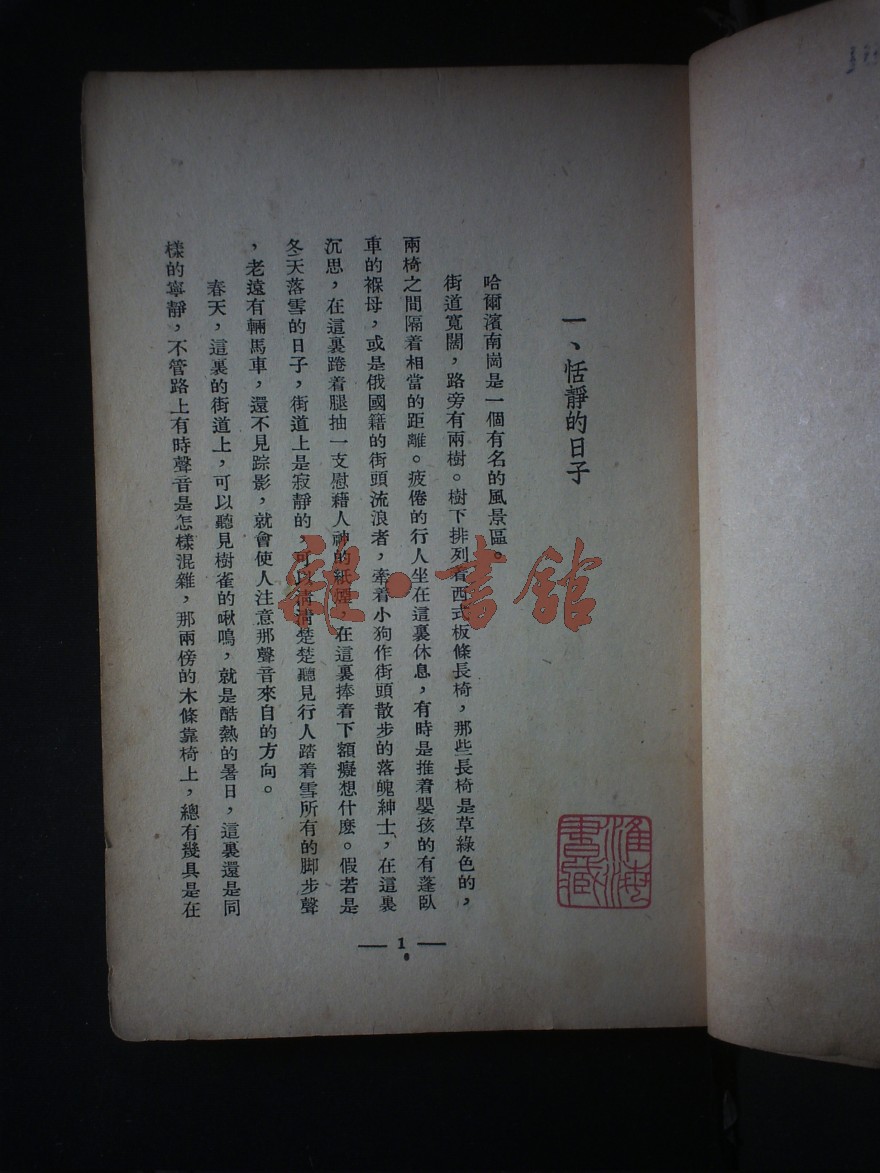 一、恬靜的日子
哈爾濱南崗是一個有名的風景區。
街道寬闊，路旁有兩樹。樹下排列着西式板條長椅，那些長椅是草綠色的，
兩椅之間隔着相當的距離。疲倦的行人坐在這裏休息，有時是推着嬰孩的有蓬臥
車的褓母，或是俄國籍的街頭流浪者，牽着小狗作街頭散步的落魄紳士，在這裏
沉思，在這裏踡着腿抽一支慰藉人神的紙煙，在這裏捧着下額癡想什麼。假若是
冬天落雪的日子，街道上是寂靜的，可以清清楚楚聽見行人踏着雪所有的脚步聲
，老遠有輛馬車，還不見踪影，就會使人注意那聲音來自的方向。
春天，這裏的街道上，可以聽見樹雀的啾鳴，就是酷熱的暑日，這裏還是同
樣的寧靜，不管路上有時聲音是怎樣混雜，那兩傍的木條靠椅上，總有幾具是在
— 1 —
雜·書館
淮海
書藏